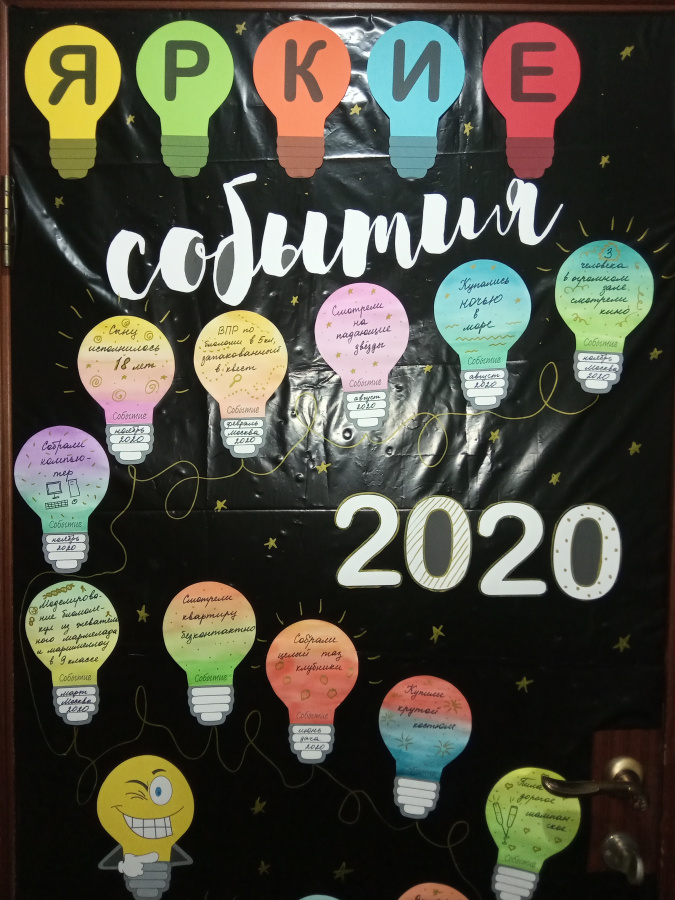 ЯРКИЕ
события
Сыну
исполнилось
18 лет
Событие
ноябрь
2020
ВПР по
биологии в 5 кл,
запакованный
в квест
Событие
февраль
Москва
2020
Смотрели
на
падающие
звёзды
Событие
август
2020
Купались
ночью
в
море
Событие
август
2020
3
человека
в огромном
зале
смотрели
кино
Событие
ноябрь
Москва
2020
Собрали
компью-
тер
Событие
ноябрь
2020
2020
Моделирова-
ние биомоле-
кул из жеватель
ного мармелада
и маршмеллоу
в 9 классе
Событие
март
Москва
2020
Смотрели
квартиру
безконтактно
Событие
Собрали
целый таз
клубники
Событие
июнь
дача
2020
Купили
крутой
костюм
Пила
дорогое
шампан-
ское
Событие